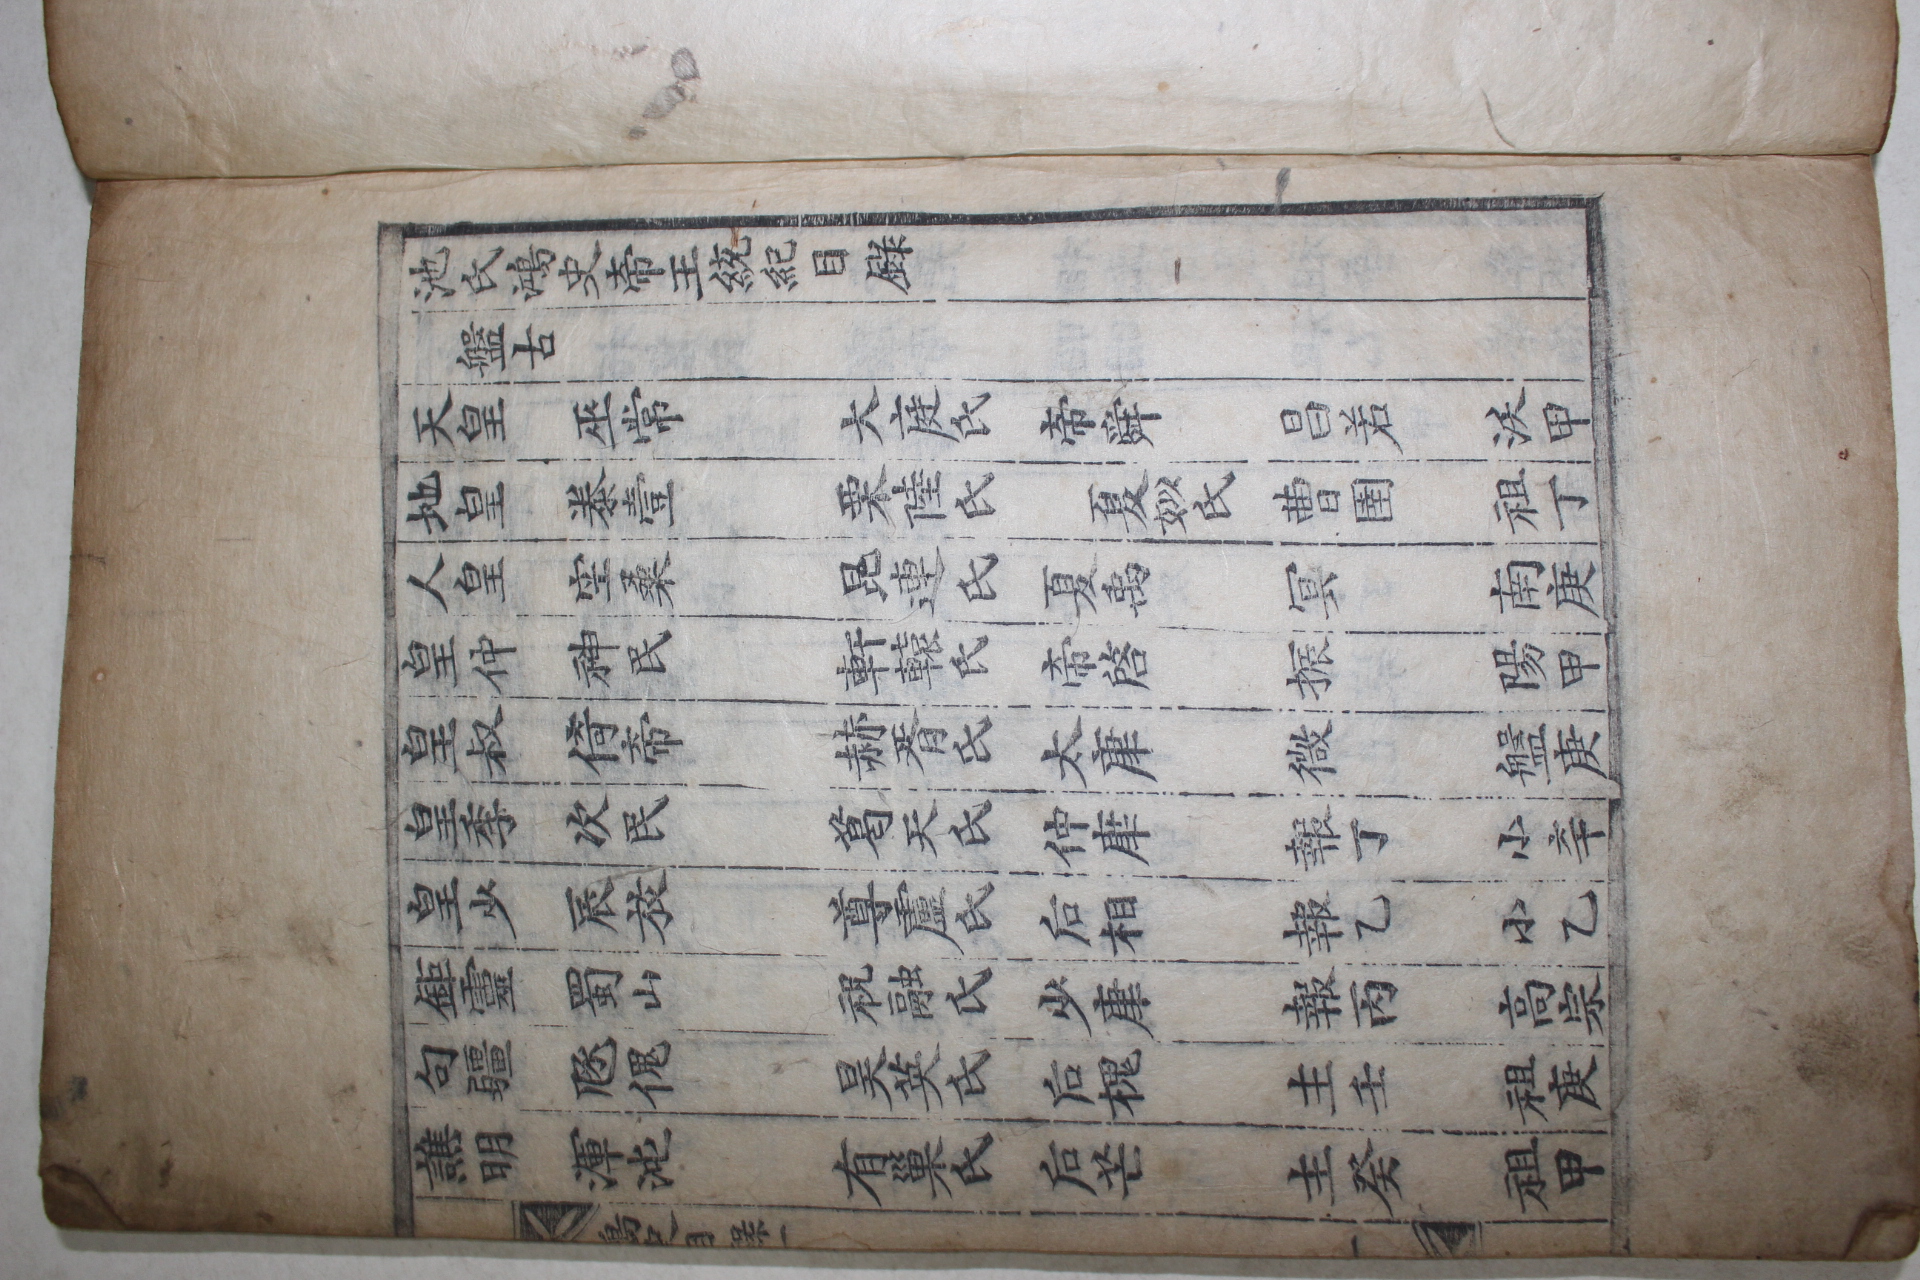 池氏鴻史帝王統紀目錄
盤古
天皇 巫常 大庭氏 帝舜 昌若 沃甲
地皇 泰壹 栗陸氏 夏姒氏 曹圉 祖丁
人皇 空桑 昆連氏 夏禹 冥 南庚
皇仲 神民 軒轅氏 帝啓 振 陽甲
皇叔 倚帝 赫胥氏 太康 微 盤庚
皇季 次民 葛天氏 仲康 報丁 小辛
皇少 辰放 尊盧氏 后相 報乙 小乙
鉅靈 蜀山 祝融氏 少康 報丙 高宗
句疆 豗傀 昊英氏 后槐 主壬 祖庚
譙明 渾沌 有巢氏 后芒 主癸 祖甲
鴻史目錄一